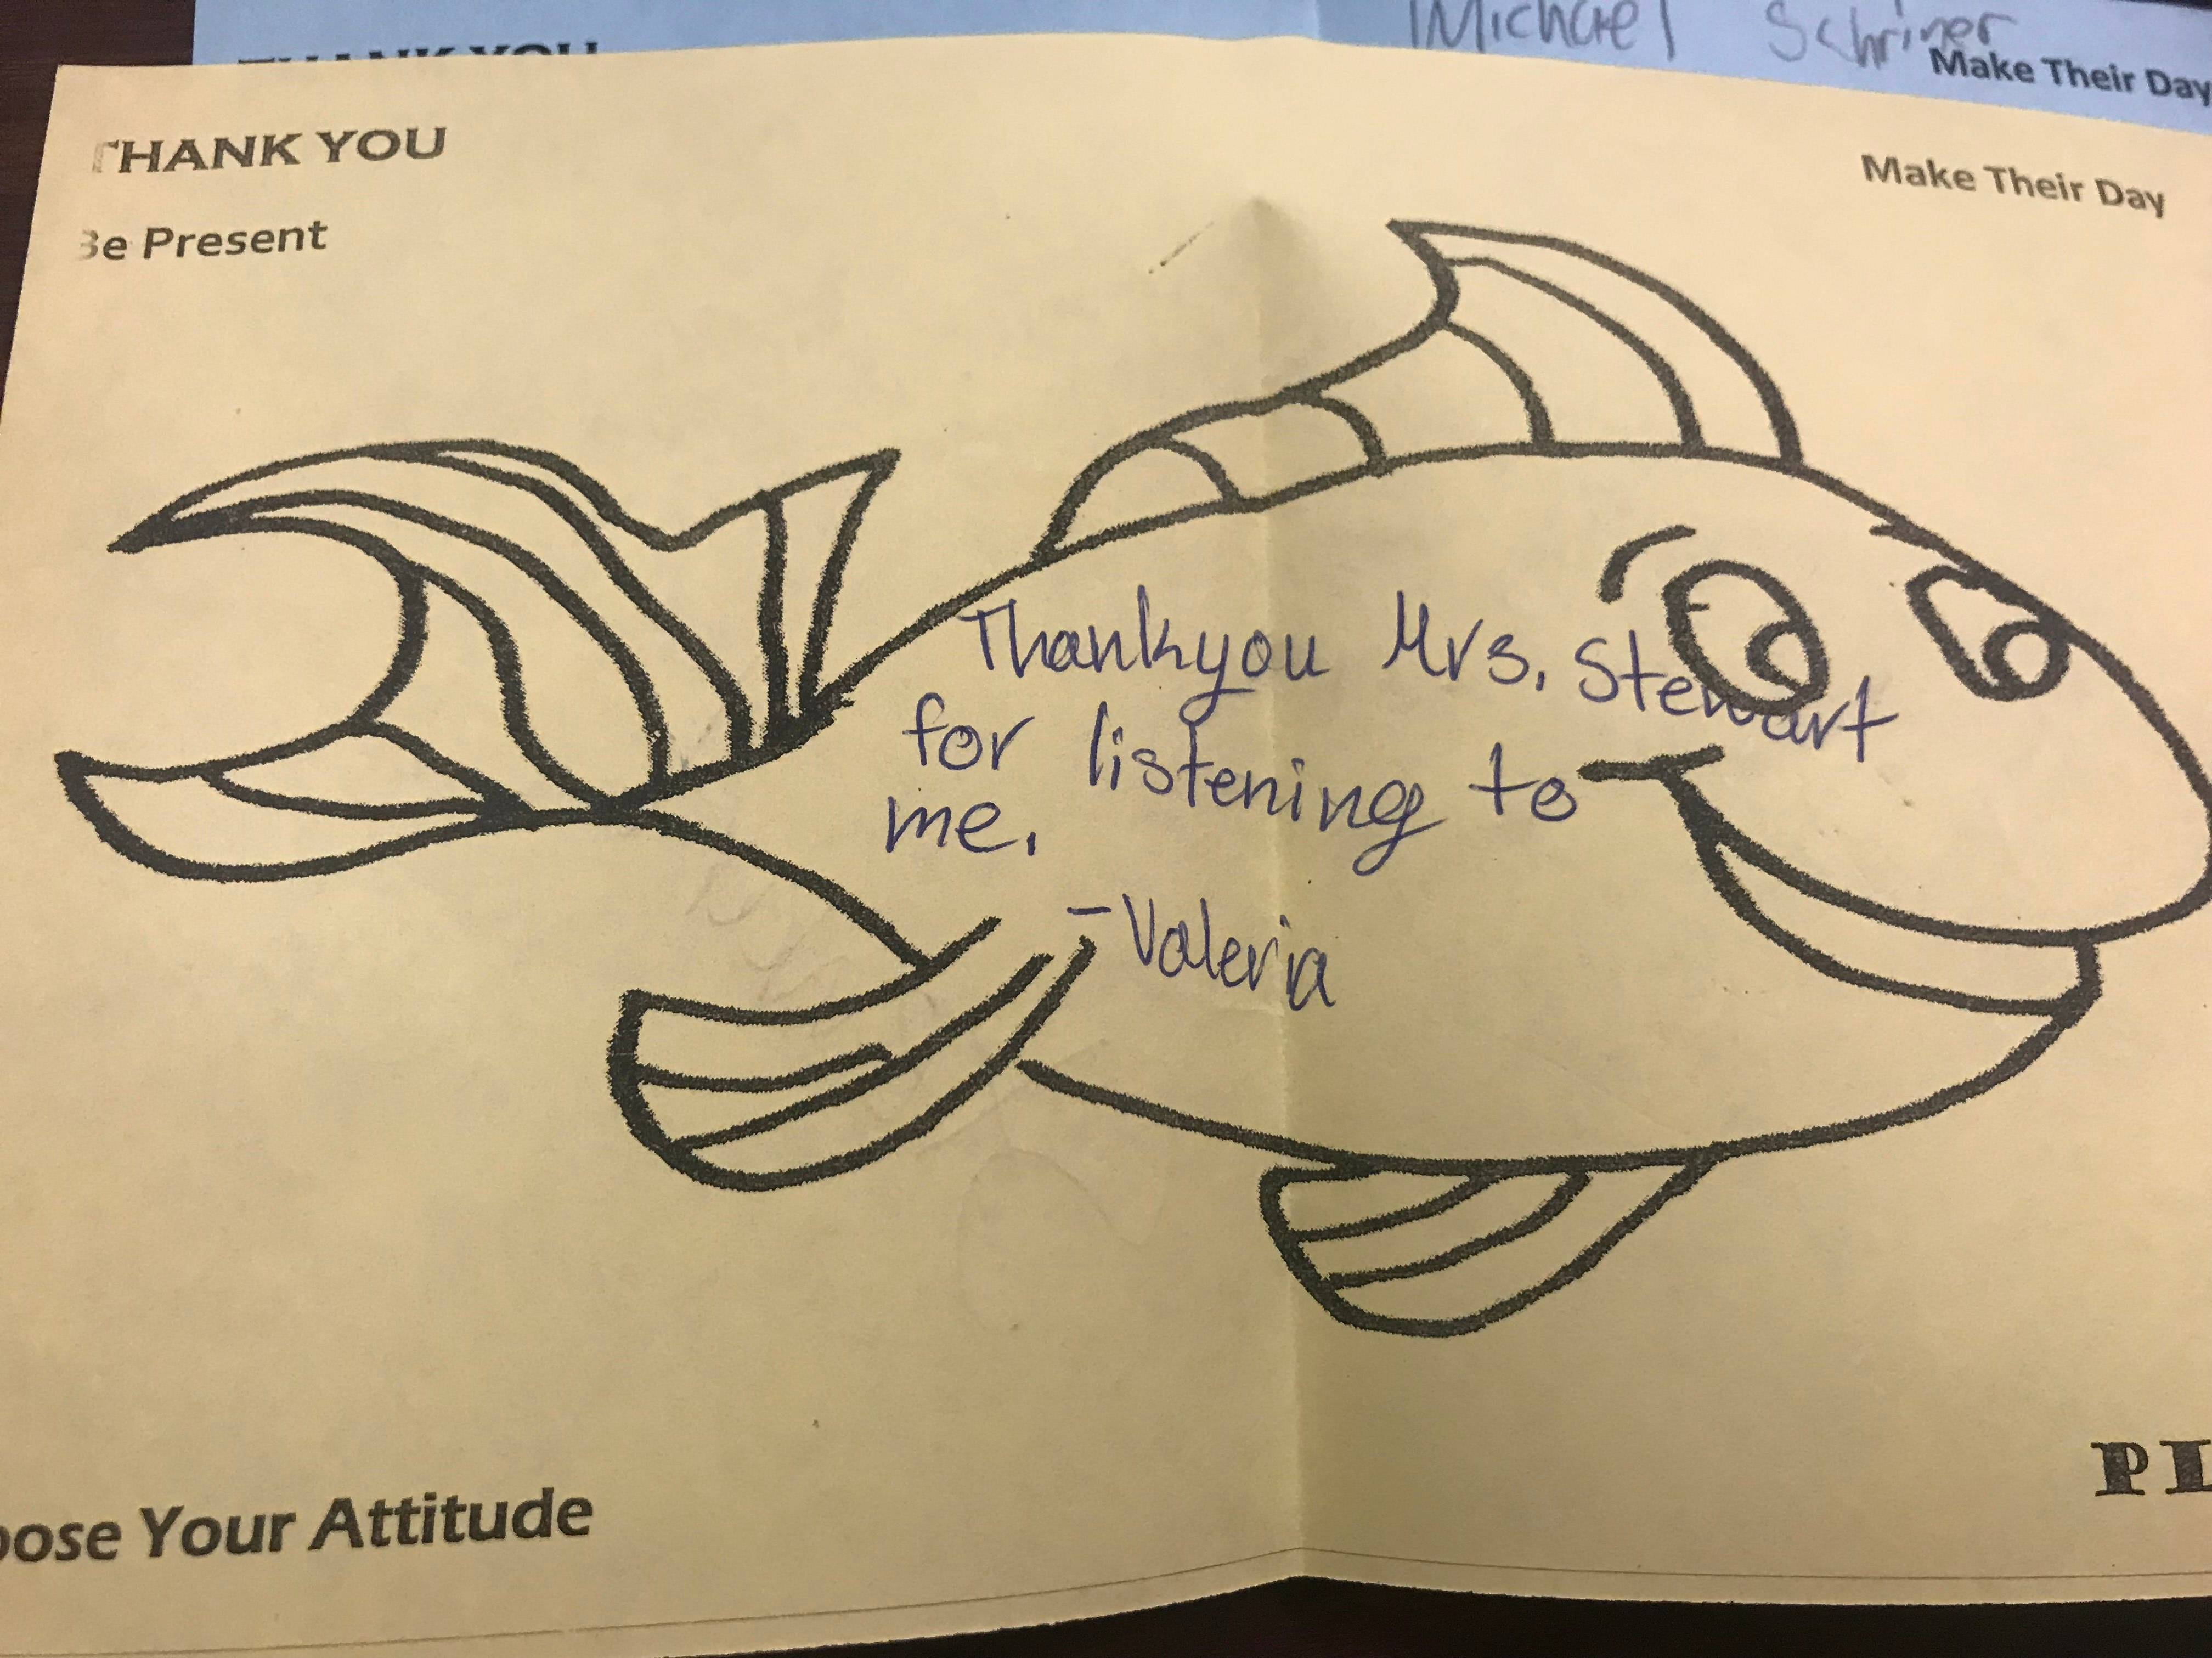 Michael Schriner
THANK YOU
Make Their Day
THANK YOU
Make Their Day
Be Present
Thankyou Mrs. Stewart
for listening to
me.
-Valeria
oose Your Attitude
PL